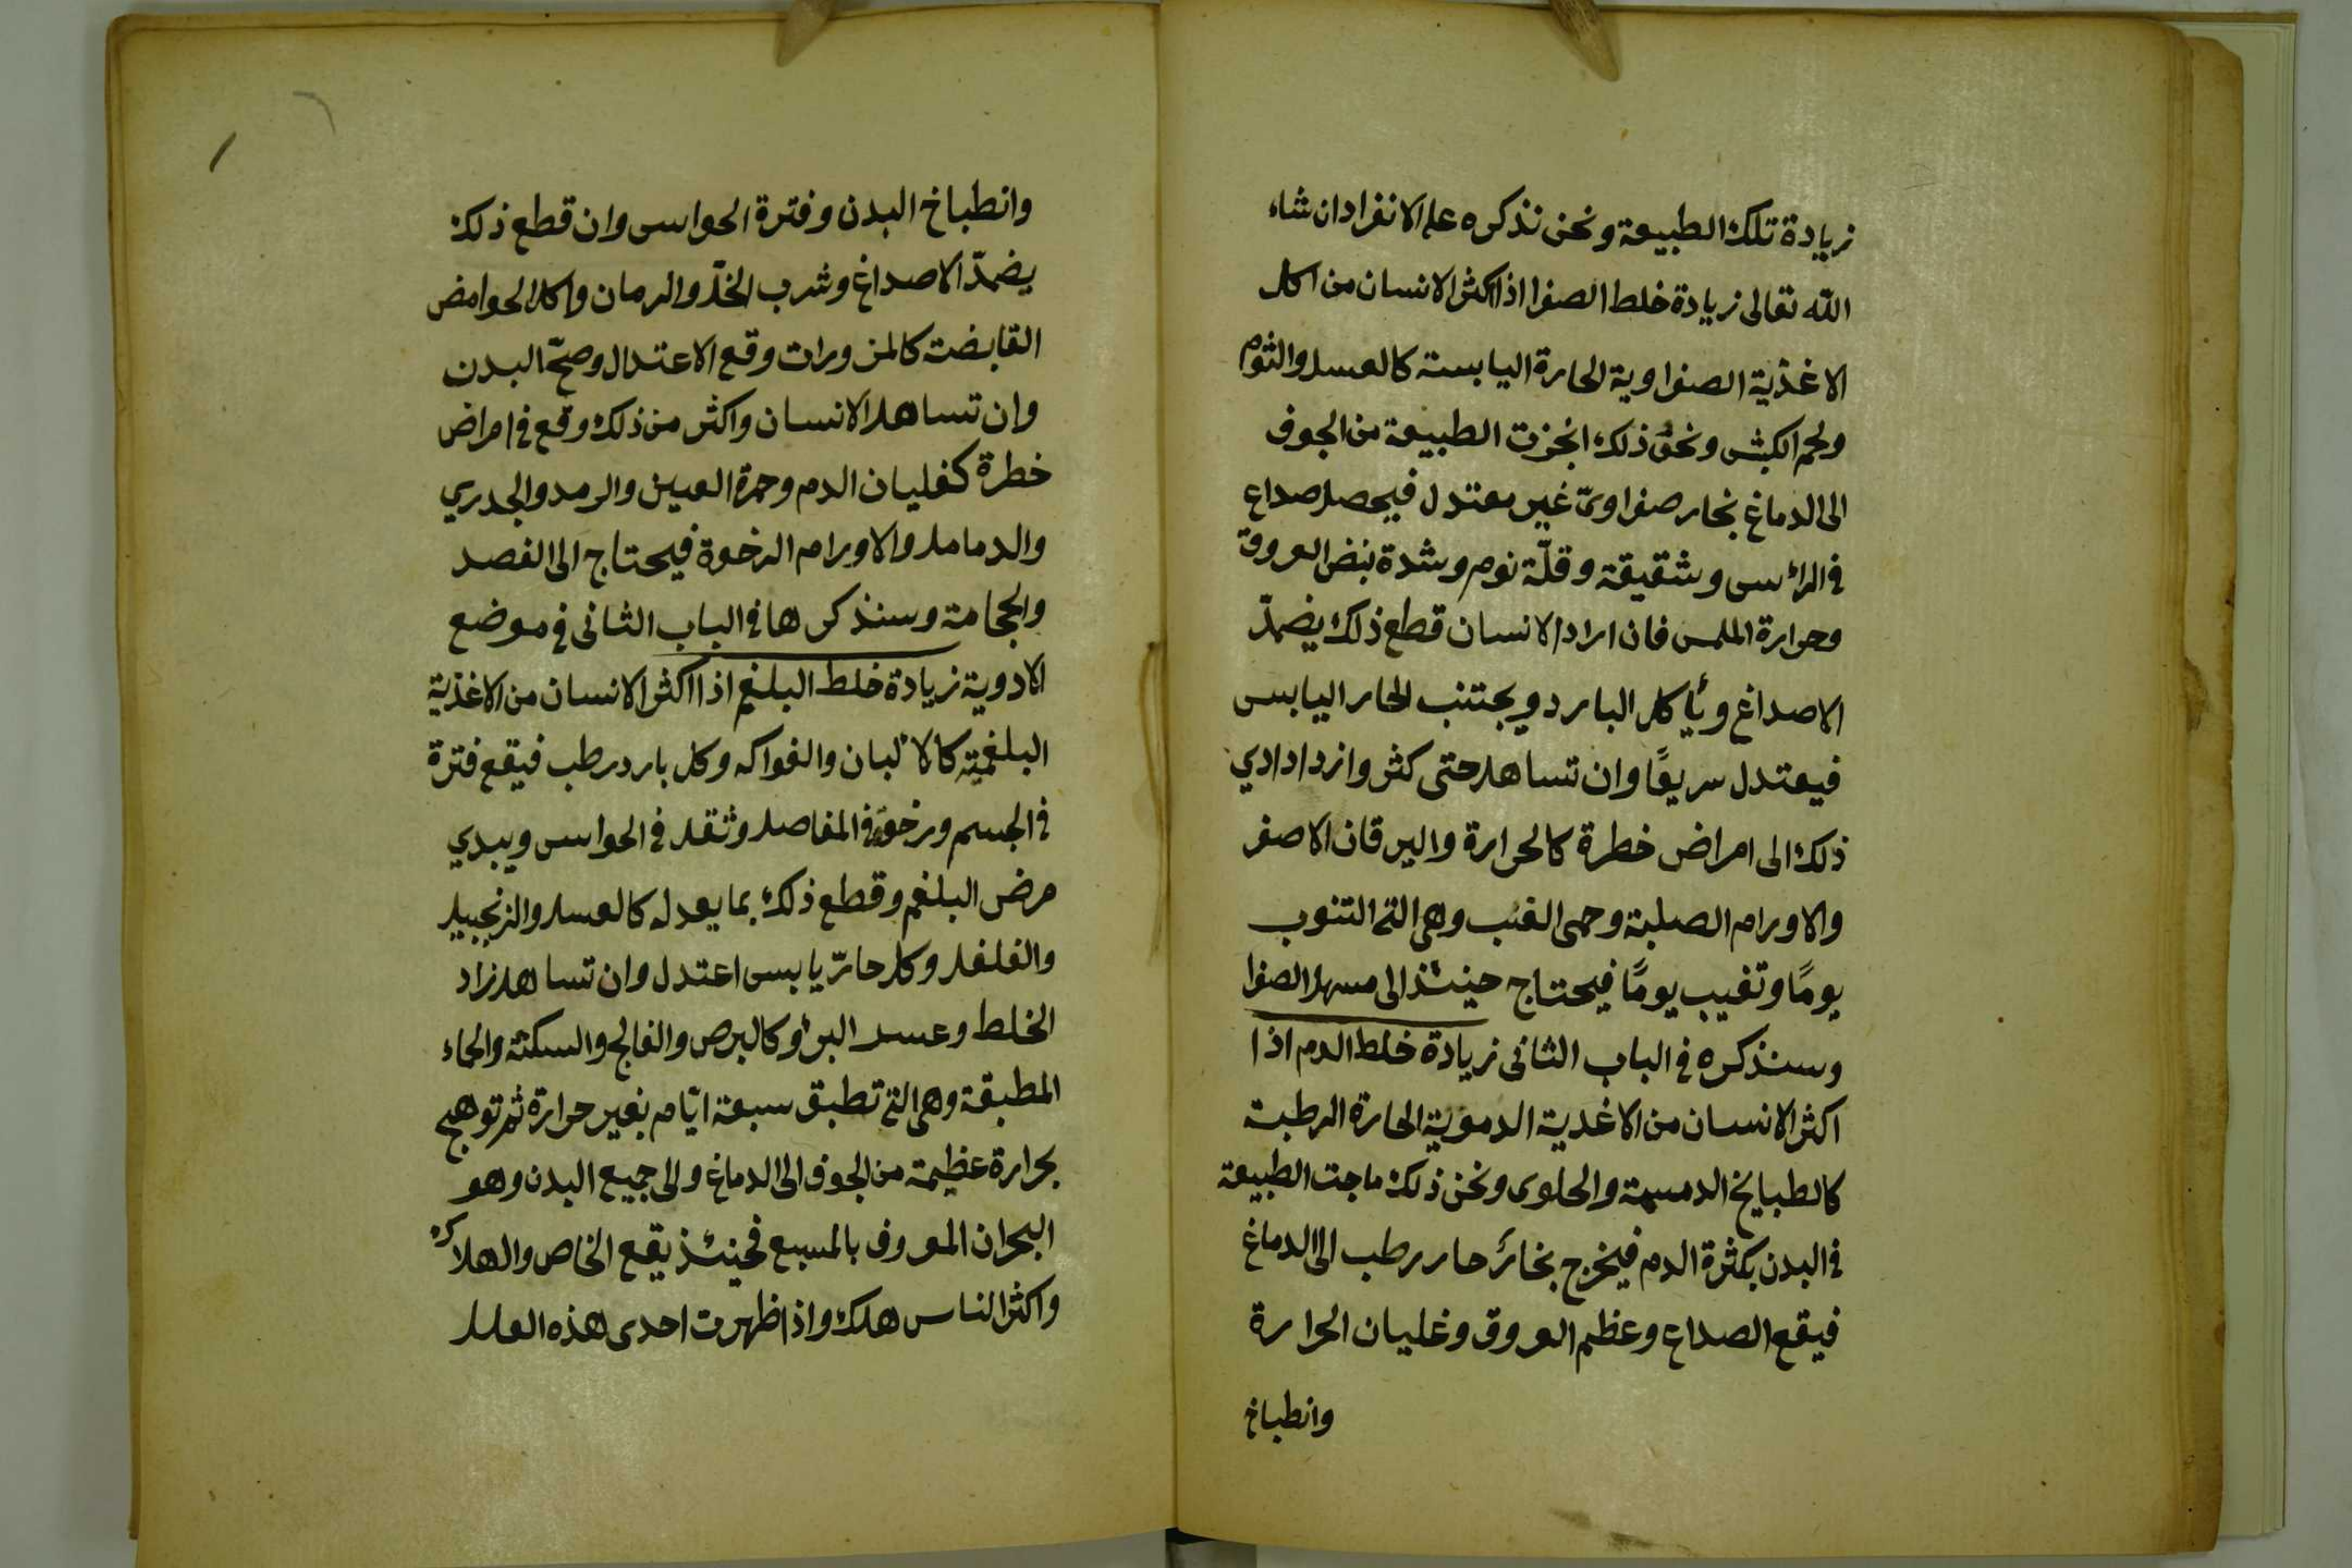 زيادة تلك الطبيعة ونحن نذكره على الانفراد ان شاء
الله تعالى زيادة خلط الصفرا اذا اكثر الانسان من اكل
الاغذية الصفراوية الحارة اليابسة كالعسل والثوم
ولحم الكبش ونحو ذلك انجزت الطبيعة من الجوف
الى الدماغ بخار صفراوىّ غير معتدل فيحصل صداع
في الرأس وشقيقة وقلّة نوم وشدة نبض العروق
وحرارة الملمس فان اراد الانسان قطع ذلك يضمدّ
الاصداغ ويأكل البارد ويجتنب الحار اليابس
فيعتدل سريعًا وان تساهل حتى كثر وازداد ادي
ذلك الى امراض خطرة كالحرارة واليرقان الاصفر
والاورام الصلبة وحمى الغب وهي التي التنوب
يومًا وتغيب يومًا فيحتاج حينئذ الى مسهل الصفرا
وسنذكره في الباب الثانى زيادة خلط الدم اذا
اكثر الانسان من الاغدية الدموية الحارة الرطبة
كالطبايخ الدسمة والحلوى ونحن ذلك ماجت الطبيعة
في البدن بكثرة الدم فيخرج بخائر حار رطب الى الدماغ
فيقع الصداع وعظم العروق وغليان الحرارة
وانطباخ
وانطباخ البدن وفترة الحواس وان قطع ذلك
يضمدّ الاصداغ وشرب الخلّ والرمان واكل الحوامض
القابضت كالمزورات وقع الاعتدال وصحّ البدن
وان تساهل الانسان واكثر من ذلك وقع في امراض
خطرة كغليان الدم وحمرة العين والرمد والجدري
والدمامل والاورام الرخوة فيحتاج الى الفصد
والحجامة وسنذكرها في الباب الثانى في موضع
الادوية زيادة خلط البلغم اذا اكثر الانسان من الاغذية
البلغمية كالالبان والفواكه وكل بارد رطب فيقع فترة
في الجسم ورخوٌ في المفاصل وثقل في الحواس ويبدي
مرض البلغم وقطع ذلك بما يعدله كالعسل والزنجبيل
والفلفل وكل حارّ يابس اعتدل وان تساهل زاد
الخلط وعسر البرؤ كالبرص والفالج والسكتة والحماء
المطبقة وهي التي تطبق سبعة ايّام بغير حرارة ثم توهج
بحرارة عظيمة من الجوف الى الدماغ والى جميع البدن وهو
البحران المعروف بالمسبع فحينئذ يقع الخاص والهلاك
واكثر الناس هلك واذا ظهرت احدى هذه العلل